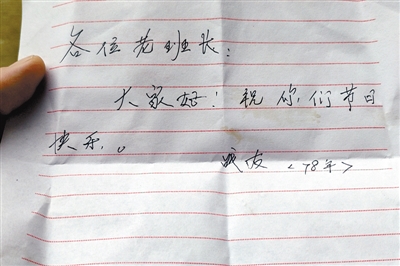 各位老班长：
大家好！祝你们节日
快乐。
战友 <78年>